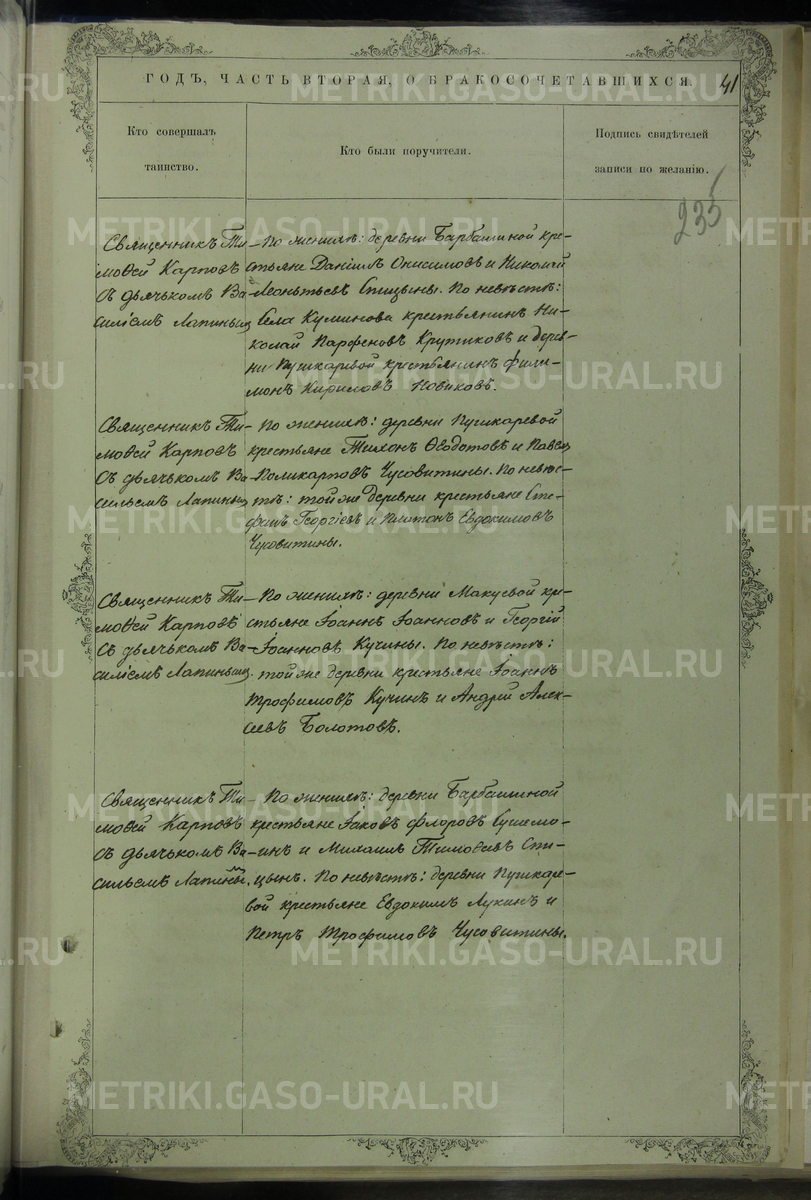 ГОДЪ, ЧАСТЬ ВТОРАЯ, О БРАКОСОЧЕТАВШИХСЯ.
41
Кто совершалъ
таинство.
Кто были поручители.
Подпись свидѣтелей
записи по желанію.
235
Священникъ Ти-
моѳей Карповъ
съ дьячькомъ Ва-
силіемъ Лапинымъ
По женихѣ: деревни Барбашиной кре-
стьяне Даніилъ Онисимовъ и Николай
Леоньтьевъ Спицыны. По невѣстѣ:
Села Куминова крестьянинъ Ни-
колай Парфеновъ Крутиковъ и дерев-
ни Пушкаревой крестьянинъ Фили-
монъ Кириловъ Новиковъ.
Священникъ Ти-
моѳей Карповъ
съ дьячькомъ Ва-
сильемъ Лапинымъ
По женихѣ: деревни Пушкаревой
крестьяне Тихонъ Ѳеодотовъ и Павелъ
Поликарповъ Чусовитины. По невѣс-
тѣ: той же деревни крестьяне Сте-
фанъ Георгіевъ и Платонъ Евдокимовъ
Чусовитины.
Священникъ Ти-
моѳей Карповъ
съ дьячькомъ Ва-
силіемъ Лапинымъ
По женихѣ: деревни Макуевой кре-
стьяне Іоаннъ Іоанновъ и Георгій
Іоанновъ Кучины. По невѣстѣ:
той же деревни крестьяне Іоаннъ
Трофимовъ Кучинъ и Андрей Алек-
сѣевъ Болотовъ.
Священникъ Ти-
моѳей Карповъ
съ дьячькомъ Ва-
сильемъ Лапинымъ.
По женихѣ: деревни Барбашиной
крестьяне Іаковъ Флоровъ
и Михаилъ Тимоѳеевъ Спи-
цынъ. По невѣстѣ: деревни Пушкаре-
вой крестьяне Евдокимъ Лукинъ и
Петръ Трофимовъ Чусовитины.
METRIKI.GASO-URAL.RU